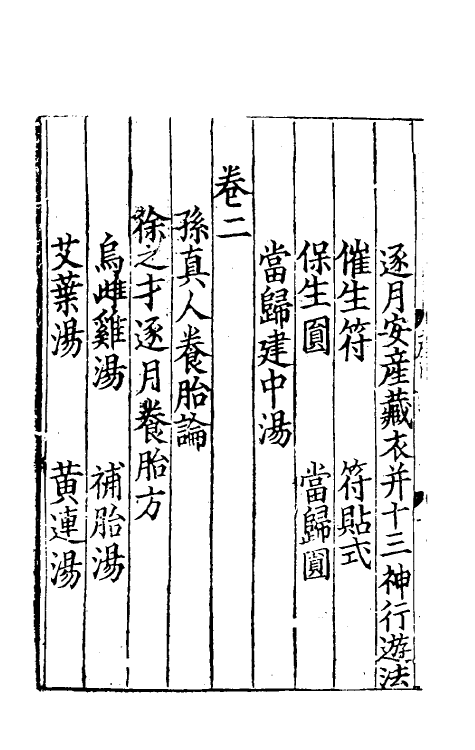 逐月安産藏衣并十三神行遊法
催生符　符貼式
保生圓　當歸圓
當歸建中湯
卷二
孫真人養胎論
徐之才逐月養胎方
烏雌雞湯　補胎湯
艾葉湯　黄連湯